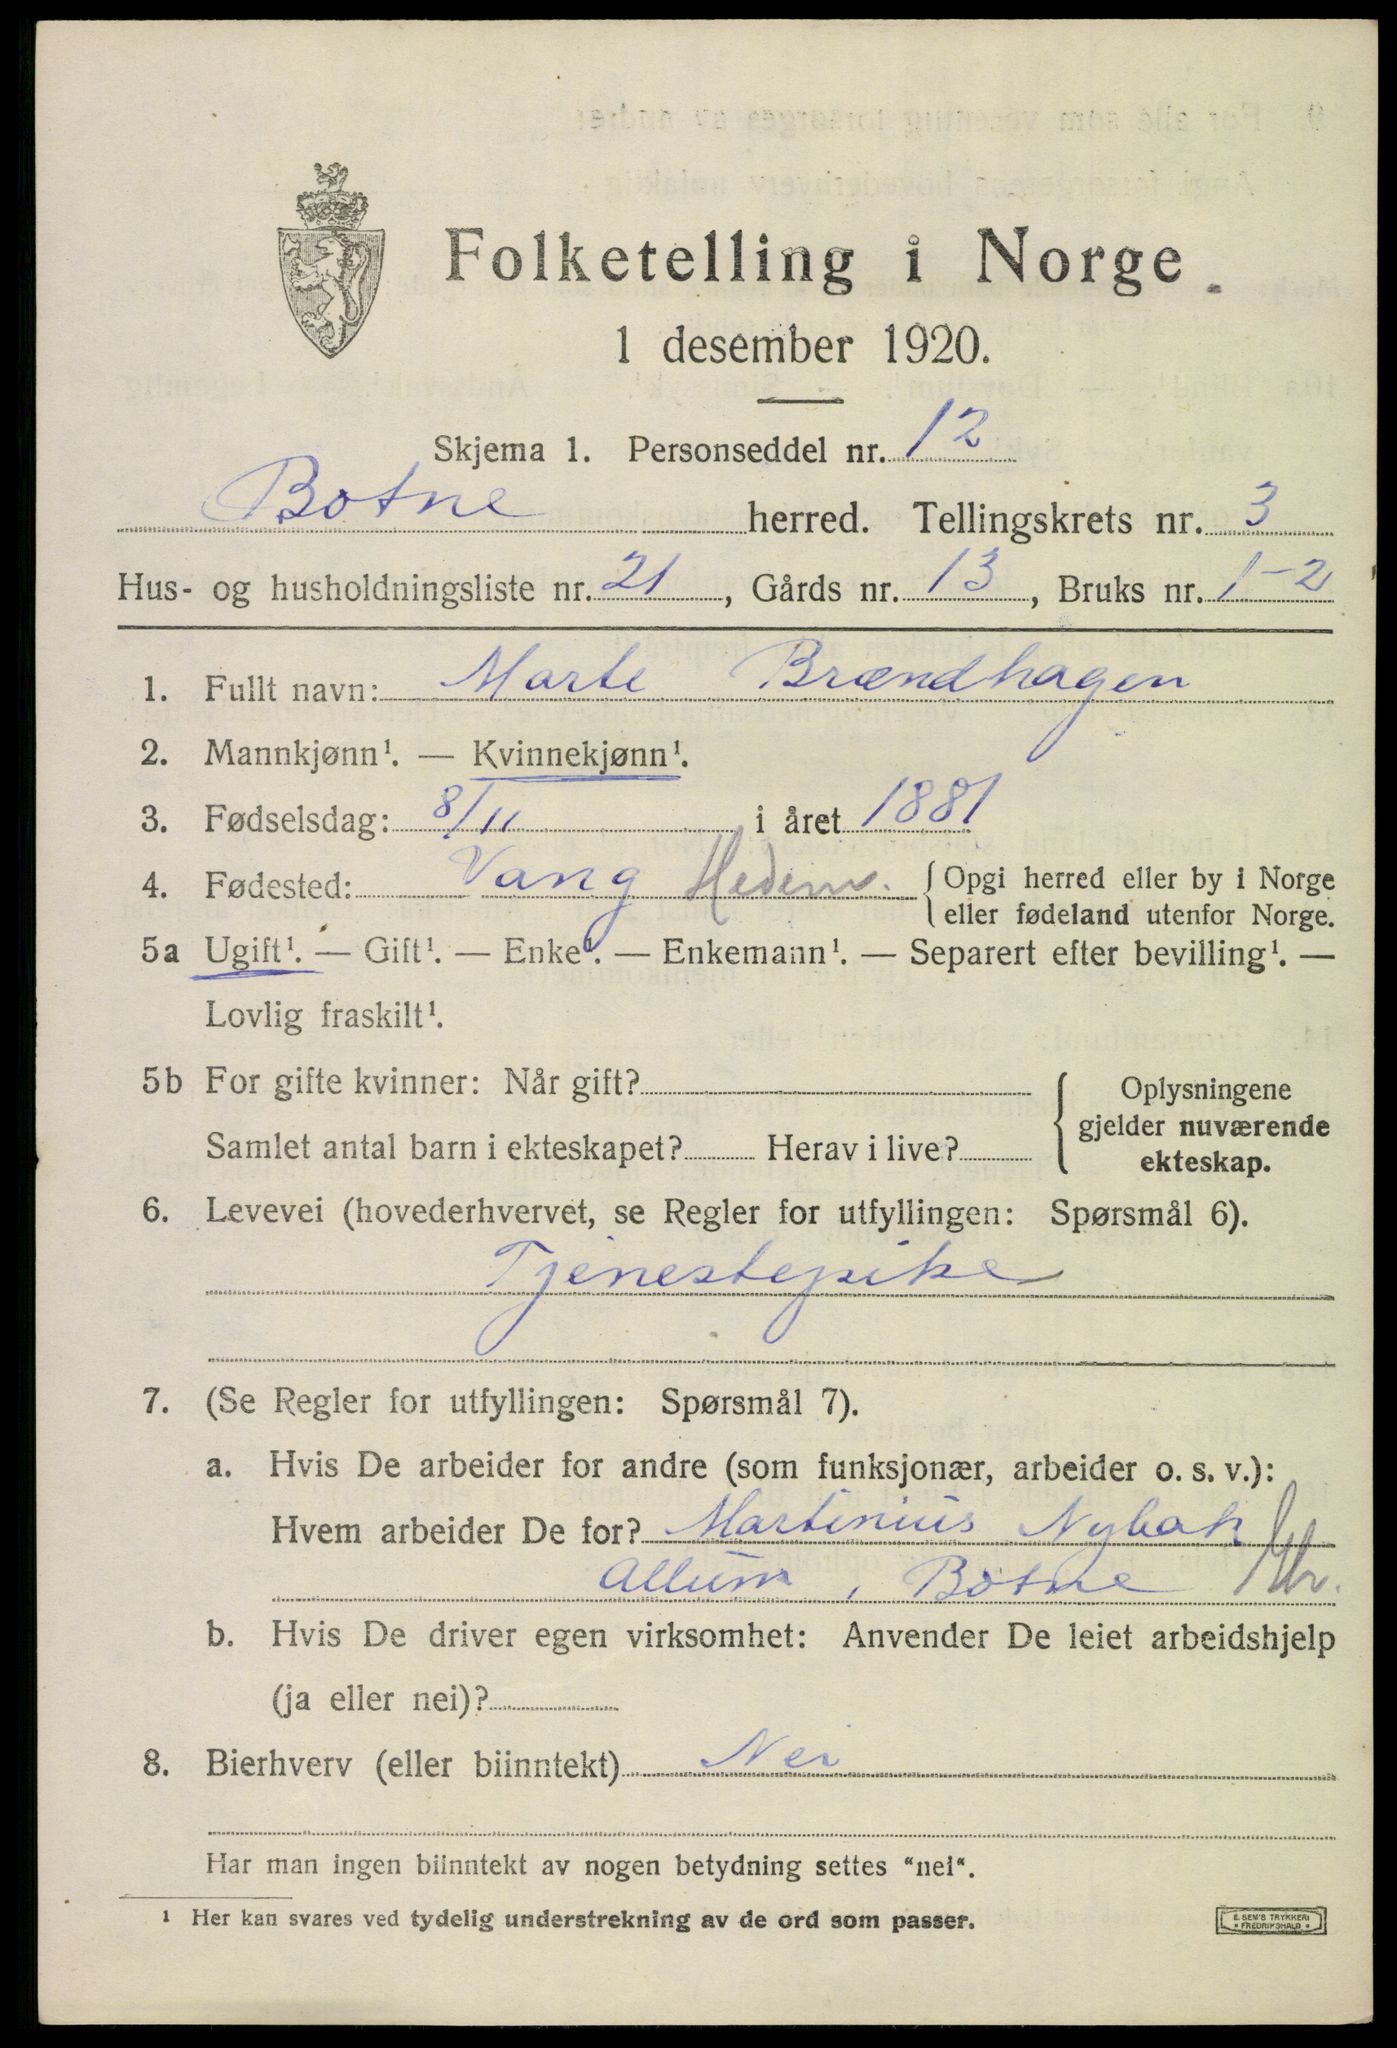 Folketelling i Norge
1 desember 1920.
Skjema 1. Personseddel nr. 12
Botne herred. Tellingskrets nr. 3
Hus- og husholdningsliste nr. 21, Gårds nr. 13, Bruks nr. 1-2
1. Fullt navn: Marte Brændhagen
2. Mannkjønn¹. — Kvinnekjønn¹.
3. Fødselsdag: 8/11 i året 1881
4. Fødested: Vang Hedem. { Opgi herred eller by i Norge
eller fødeland utenfor Norge.
5a Ugift¹. — Gift¹. — Enke¹. — Enkemann¹. — Separert efter bevilling¹. —
Lovlig fraskilt¹.
5b For gifte kvinner: Når gift?
Samlet antal barn i ekteskapet? Herav i live?
{ Oplysningene
gjelder nuværende
ekteskap.
6. Levevei (hovederhvervet, se Regler for utfyllingen: Spørsmål 6).
Tjenestepike
7. (Se Regler for utfyllingen: Spørsmål 7).
a. Hvis De arbeider for andre (som funksjonær, arbeider o. s. v.):
Hvem arbeider De for? Martinius Nybak
Allum, Botne
b. Hvis De driver egen virksomhet: Anvender De leiet arbeidshjelp
(ja eller nei)?
8. Bierhverv (eller biinntekt) Nei
Har man ingen biinntekt av nogen betydning settes "nei".
¹ Her kan svares ved tydelig understrekning av de ord som passer.
E. SEM'S TRYKKERI
* FREDRIKSHALD *